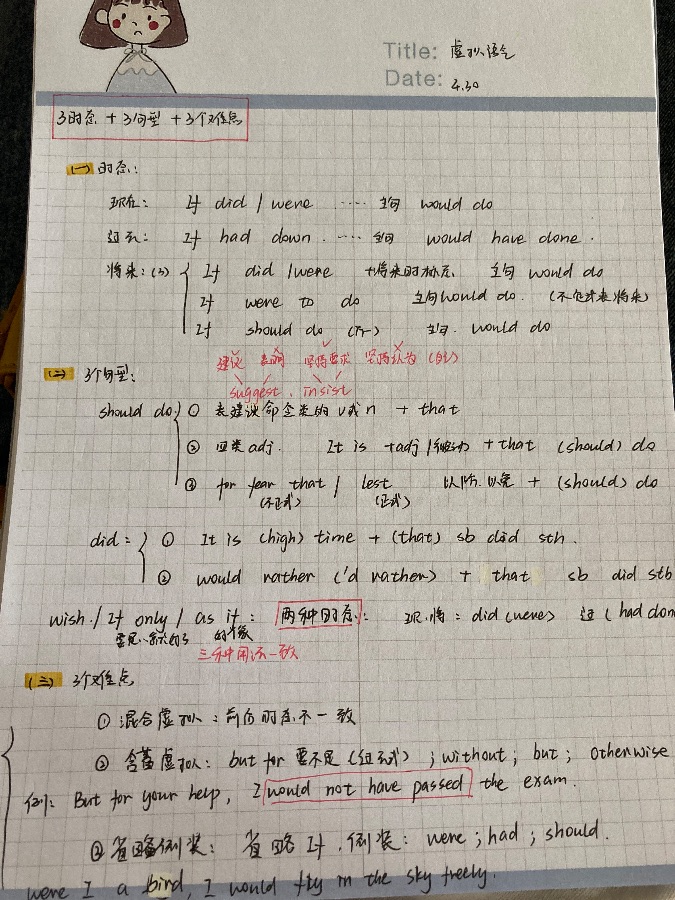 Title: 虚拟语气
Date: 4.30
3时态 + 3句型 + 3个难点
(一) 时态:
现在: If did / were ...... 主句 would do
过去: If had down ...... 主句 would have done.
将来: (3) If did / were +将来时标志 主句 would do
If were to do 主句 would do. (不定式表将来)
If should do 主句. would do
建议 表明 坚持要求 坚持认为
suggest. insist
(二) 3个句型:
should do ① 表建议命令类的 v或n + that
② 四类adj. It is +adj / + that (should) do
③ for fear that / lest 以防. 以免 + (should) do
(不正式) (正式)
did: ① It is (high) time + (that) sb did sth.
② would rather ('d rather) + that sb did sth
wish / If only / as if: 两种时态: 现.将: did (were) 过 (had don
要是...就好了 好像
三种用法一致
(三) 3个难点
① 混合虚拟: 前后时态不一致
② 含蓄虚拟: but for 要不是 (过去式) ; without ; but ; otherwise
例: But for your help, I would not have passed the exam.
③ 省略倒装: 省略 If, 倒装: were ; had ; should.
were I a bird, I would fly in the sky freely.